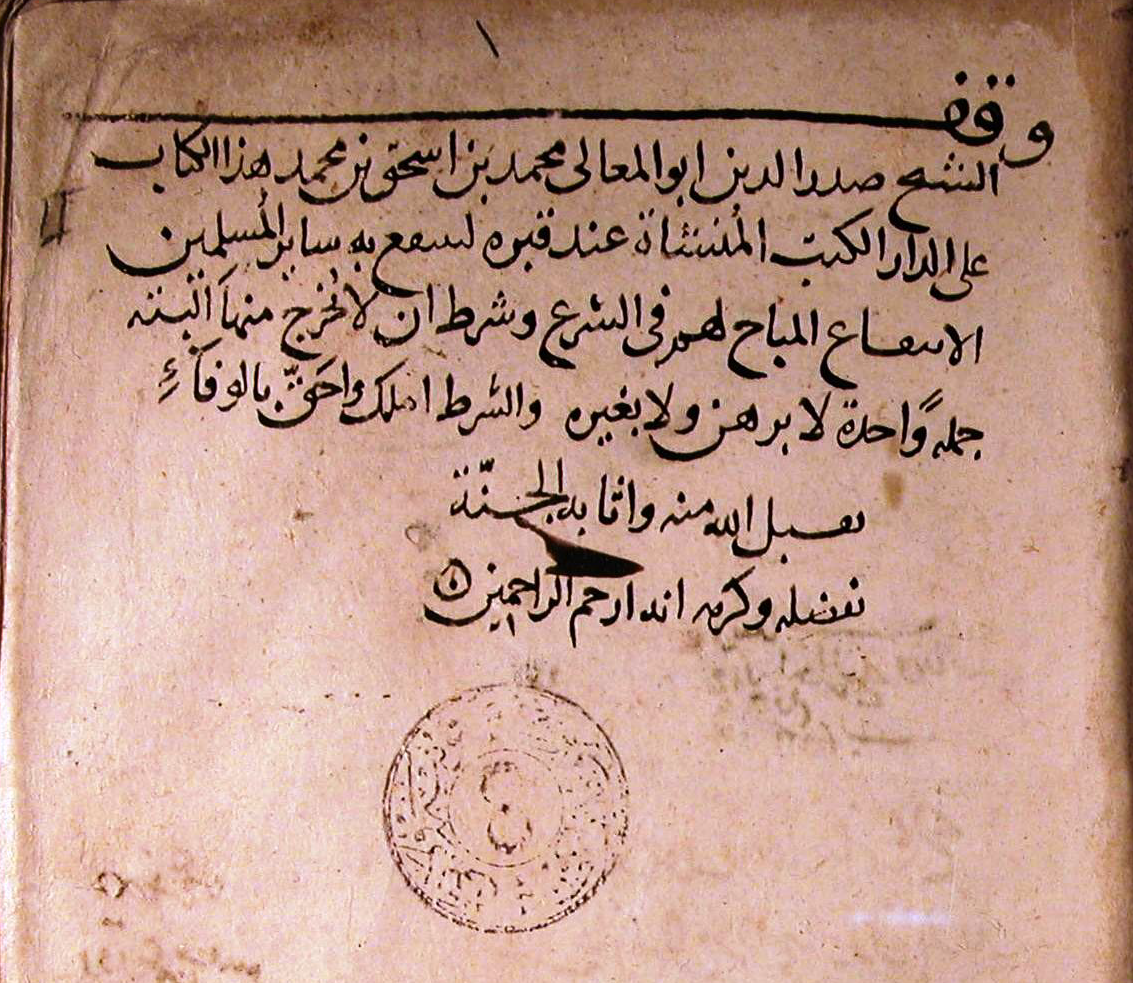 ١
وقف
الشيخ صدر الدين ابو المعالى محمد بن اسحق بن محمد هذا الكتاب
على الدار الكتب المُنشئاة عند قبره لينتفع به ساير المُسلمين
الانتفاع المباح لهم فى الشرع وشرط ان لا تُخرج منها البتة
جملةً واحدة لا برهن ولا بغيره والشرط املك واحقّ بالوفاءِ
تقبل الله منه واثابه الجنّة
بفضله وكرمه انه ارحم الراحمين